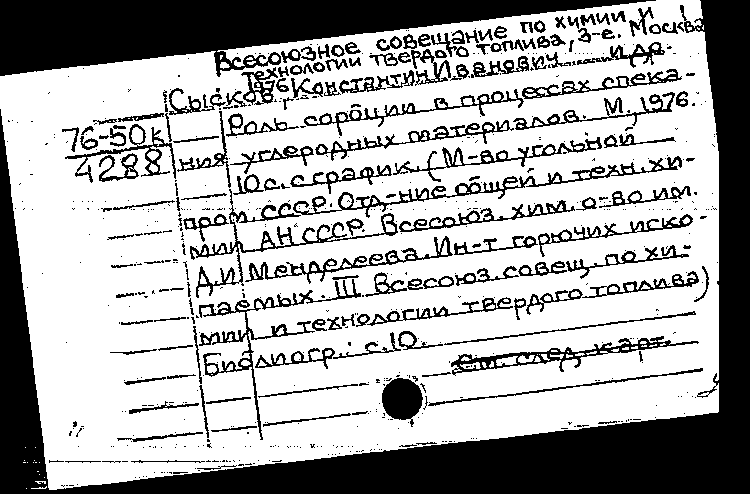 Всесоюзное совещание по химии и
технологии твердого топлива, 3-е. Москва
1976
Сысков, Константин Иванович и др.
76-50к
4288
Роль сорбции в процессах спека-
ния углеродных материалов. М., 1976.
10 с. с график. (М-во угольной
пром. СССР. Отд-ние общей и техн. хи-
мии АН СССР. Всесоюз. хим. о-во им.
Д.И. Менделеева. Ин-т горючих иско-
паемых. III Всесоюз. совещ. по хи-
мии и технологии твердого топлива).
Библиогр.: с. 10.
См. след. карт.